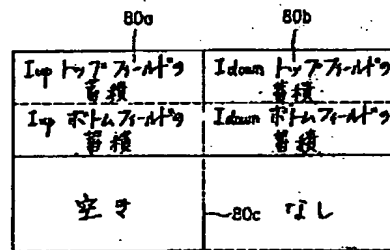 80a
80b
Iup トップフィールドの
蓄積
Idown トップフィールドの
蓄積
Iup ボトムフィールドの
蓄積
Idown ボトムフィールドの
蓄積
空き
80c
なし